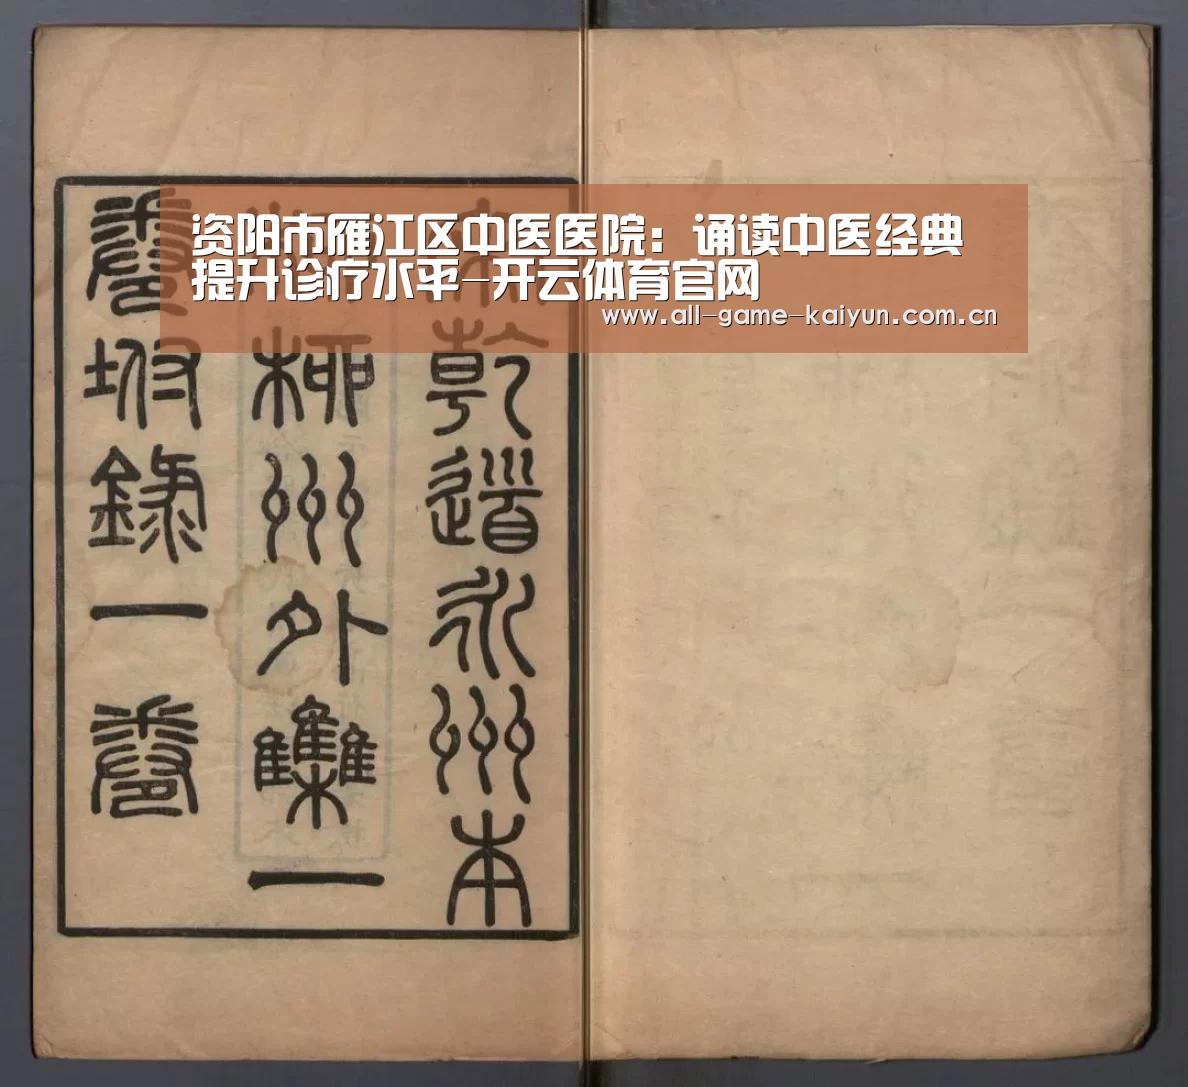 资阳市雁江区中医医院：诵读中医经典
提升诊疗水平-开云体育官网
www.all-game-kaiyun.com.cn
宋乾道永州本
柳州外集一
卷坿錄一卷